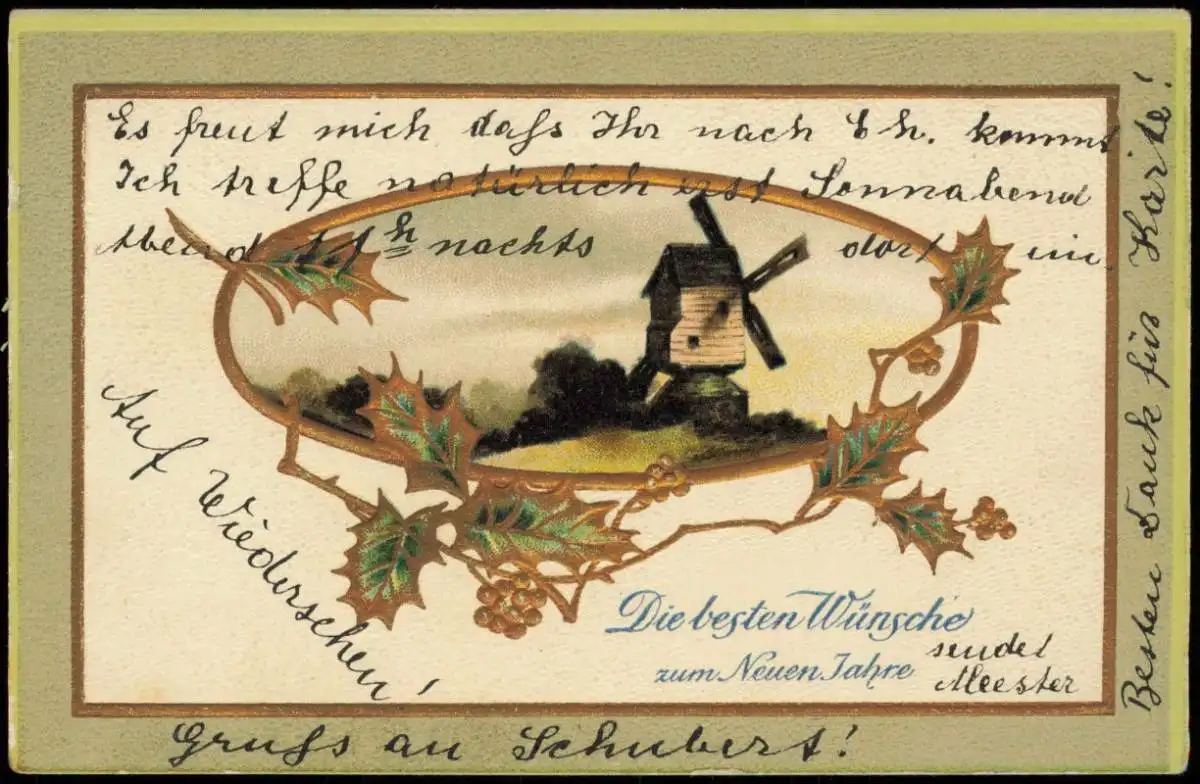 Es freut mich dass Ihr nach Eh. kommt
Ich treffe natürlich erst Sonnabend
Abend 11h nachts dort ein.
Auf Wiedersehen!
Die besten Wünsche
zum Neuen Jahre
sendet
Meester
Gruss an Schubert!
Besten Dank für Karte!